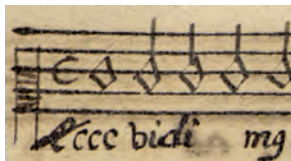 Ecce vidi mg